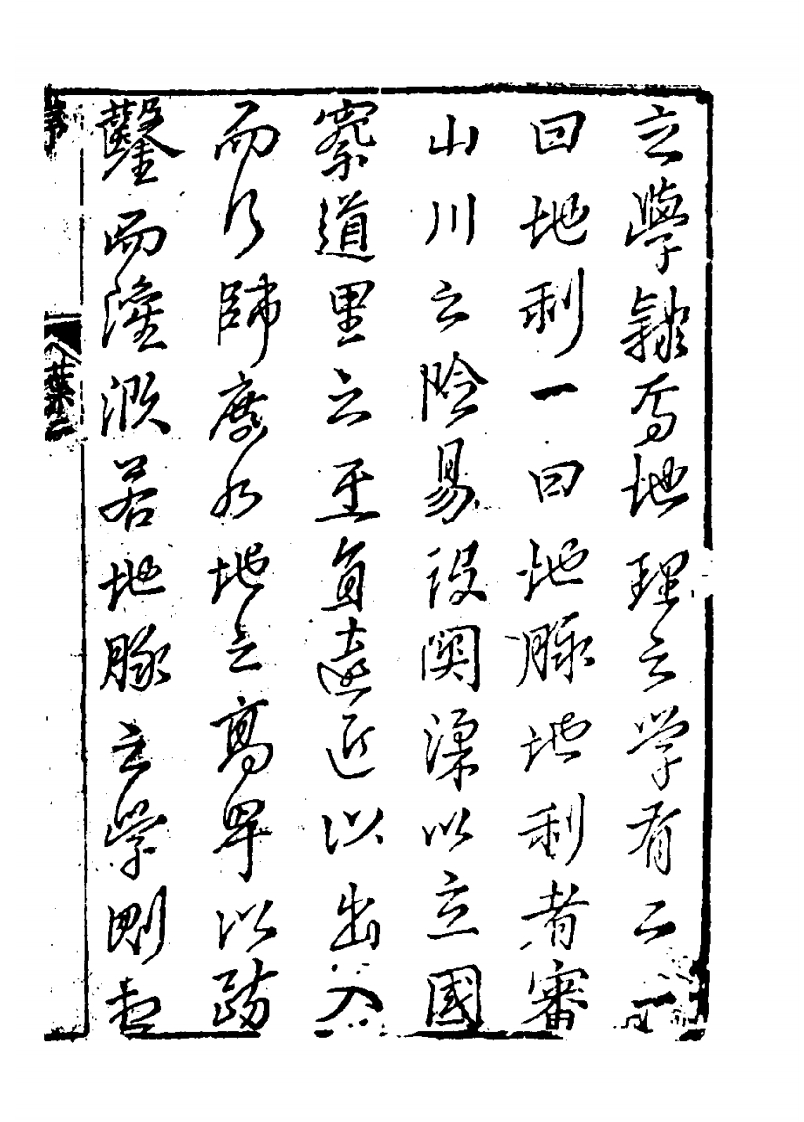 之學隸焉地理之学有二一
曰地利一曰地脉地利者審
山川之险易設関梁以立國
察道里之至負遠近以出入
而行師度水地之高卑以疏
鑿而灌溉若地脉之学則
序
葉二